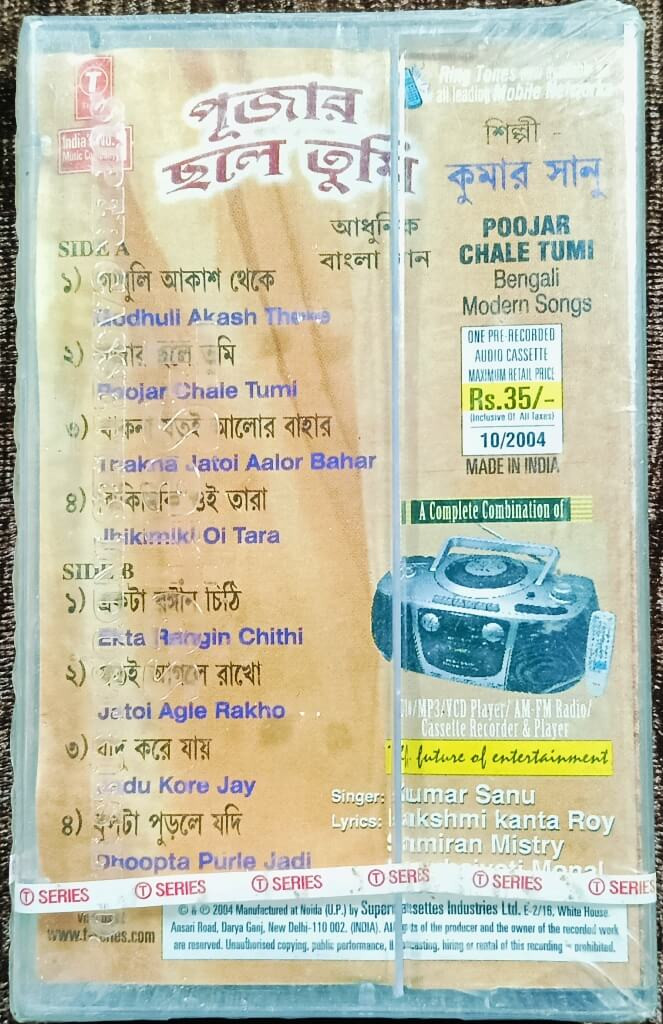 T
India's No.
Music Company
পূজার
ছলে তুমি
আধুনিক
বাংলা গান
SIDE A
১) গোধুলি আকাশ থেকে
Godhuli Akash Theke
২) পূজার ছলে তুমি
Poojar Chale Tumi
৩) থাকনা যতই আলোর বাহার
Thakna Jatoi Aalor Bahar
৪) ঝিকিমিকি ওই তারা
Jhikimiki Oi Tara
SIDE B
১) একটা রঙ্গীন চিঠি
Ekta Rangin Chithi
২) যতই আগলে রাখো
Jatoi Agle Rakho
৩) যাদু করে যায়
Jadu Kore Jay
৪) ধূপটা পুড়লে যদি
Dhoopta Purle Jadi
Ring Tones now available
all leading Mobile Networks
শিল্পী -
কুমার সানু
POOJAR
CHALE TUMI
Bengali
Modern Songs
ONE PRE-RECORDED
AUDIO CASSETTE
MAXIMUM RETAIL PRICE
Rs.35/-
(Inclusive Of All Taxes)
10/2004
MADE IN INDIA
A Complete Combination of
/MP3/VCD Player/ AM-FM Radio/
Cassette Recorder & Player
future of entertainment
Singer: Kumar Sanu
Lyrics: Lakshmi kanta Roy
Samiran Mistry
Mondal
T SERIES T SERIES T SERIES T SERIES T SERIES T SERIES
www.t-series.com
© & ℗ 2004 Manufactured at Noida (U.P.) by Super Cassettes Industries Ltd. E-2/16, White House
Ansari Road, Darya Ganj, New Delhi-110 002. (INDIA). All rights of the producer and the owner of the recorded work
are reserved. Unauthorised copying, public performance, broadcasting, hiring or rental of this recording is prohibited.